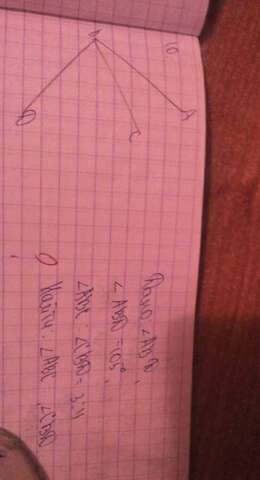 A
C
D
Дано: ∠ABD,
∠ ABD = 105°,
∠ABC : ∠CBD = 3:4
Найти: ∠ABC, ∠CBD